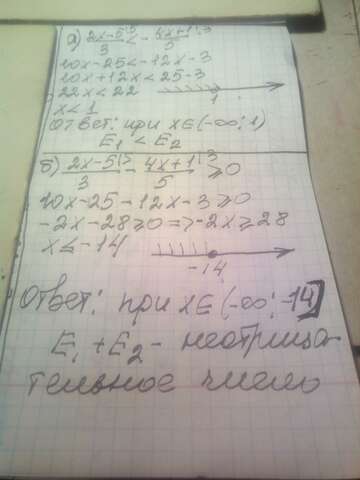 а) (2x-5)/3 \5 < -(4x+1)/5 \3
10x-25<-12x-3
10x+12x<25-3
22x<22
1
x<1
Ответ: при x∈(-∞;1)
E₁ < E₂
б) (2x-5)/3 \5 - (4x+1)/5 \3 ⩾0
10x-25-12x-3⩾0
-2x-28⩾0=>-2x⩾28
x⩽-14
-14
Ответ: при x∈(-∞;-14]
E₁+E₂- неотрица
тельное число